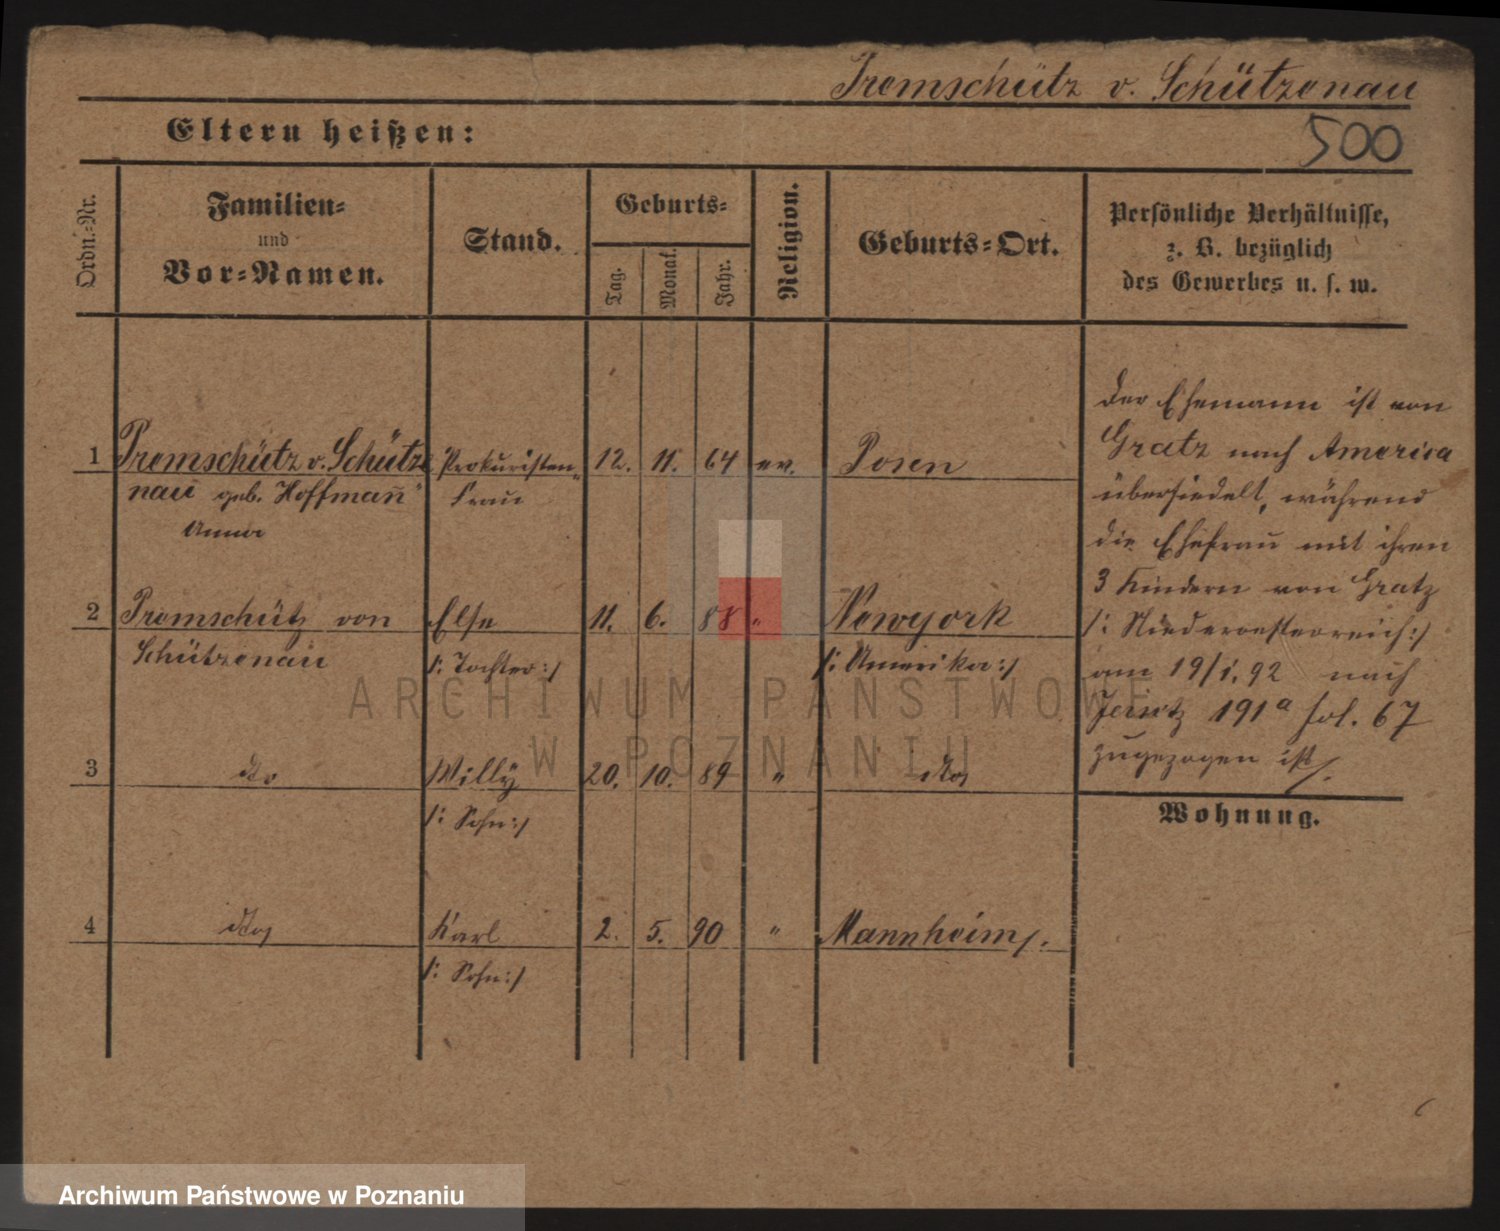 Premschütz v. Schützenau
500
Eltern heißen:
Ordn.-Nr.
Familien-
und
Vor-Namen.
Stand.
Geburts-
Tag.
Monat.
Jahr.
Religion.
Geburts-Ort.
Persönliche Verhältnisse,
z. B. bezüglich
des Gewerbes u. s. w.
1 Premschütz v. Schütze Prokuristen 12. 11. 64 ev. Posen
nau geb. Hoffman̄ Frau
Anna
2 Premschütz von Else 11. 6. 88 " Newyork
Schützenau /: Tochter :/ /: Amerika :/
3 do Willy 20. 10. 89 " do
/: Sohn :/
4 do Karl 2. 5. 90 " Mannheim /.
/: Sohn :/
Der Ehemann ist von
Gratz nach America
übersiedelt, während
die Ehefrau mit ihren
3 Kindern von Gratz
/: Niederoesterreich :/
am 19/1. 92 nach
191a fol. 67
zugezogen ist /.
Wohnung.
ARCHIWUM PAŃSTWOWE
W POZNANIU
Archiwum Państwowe w Poznaniu